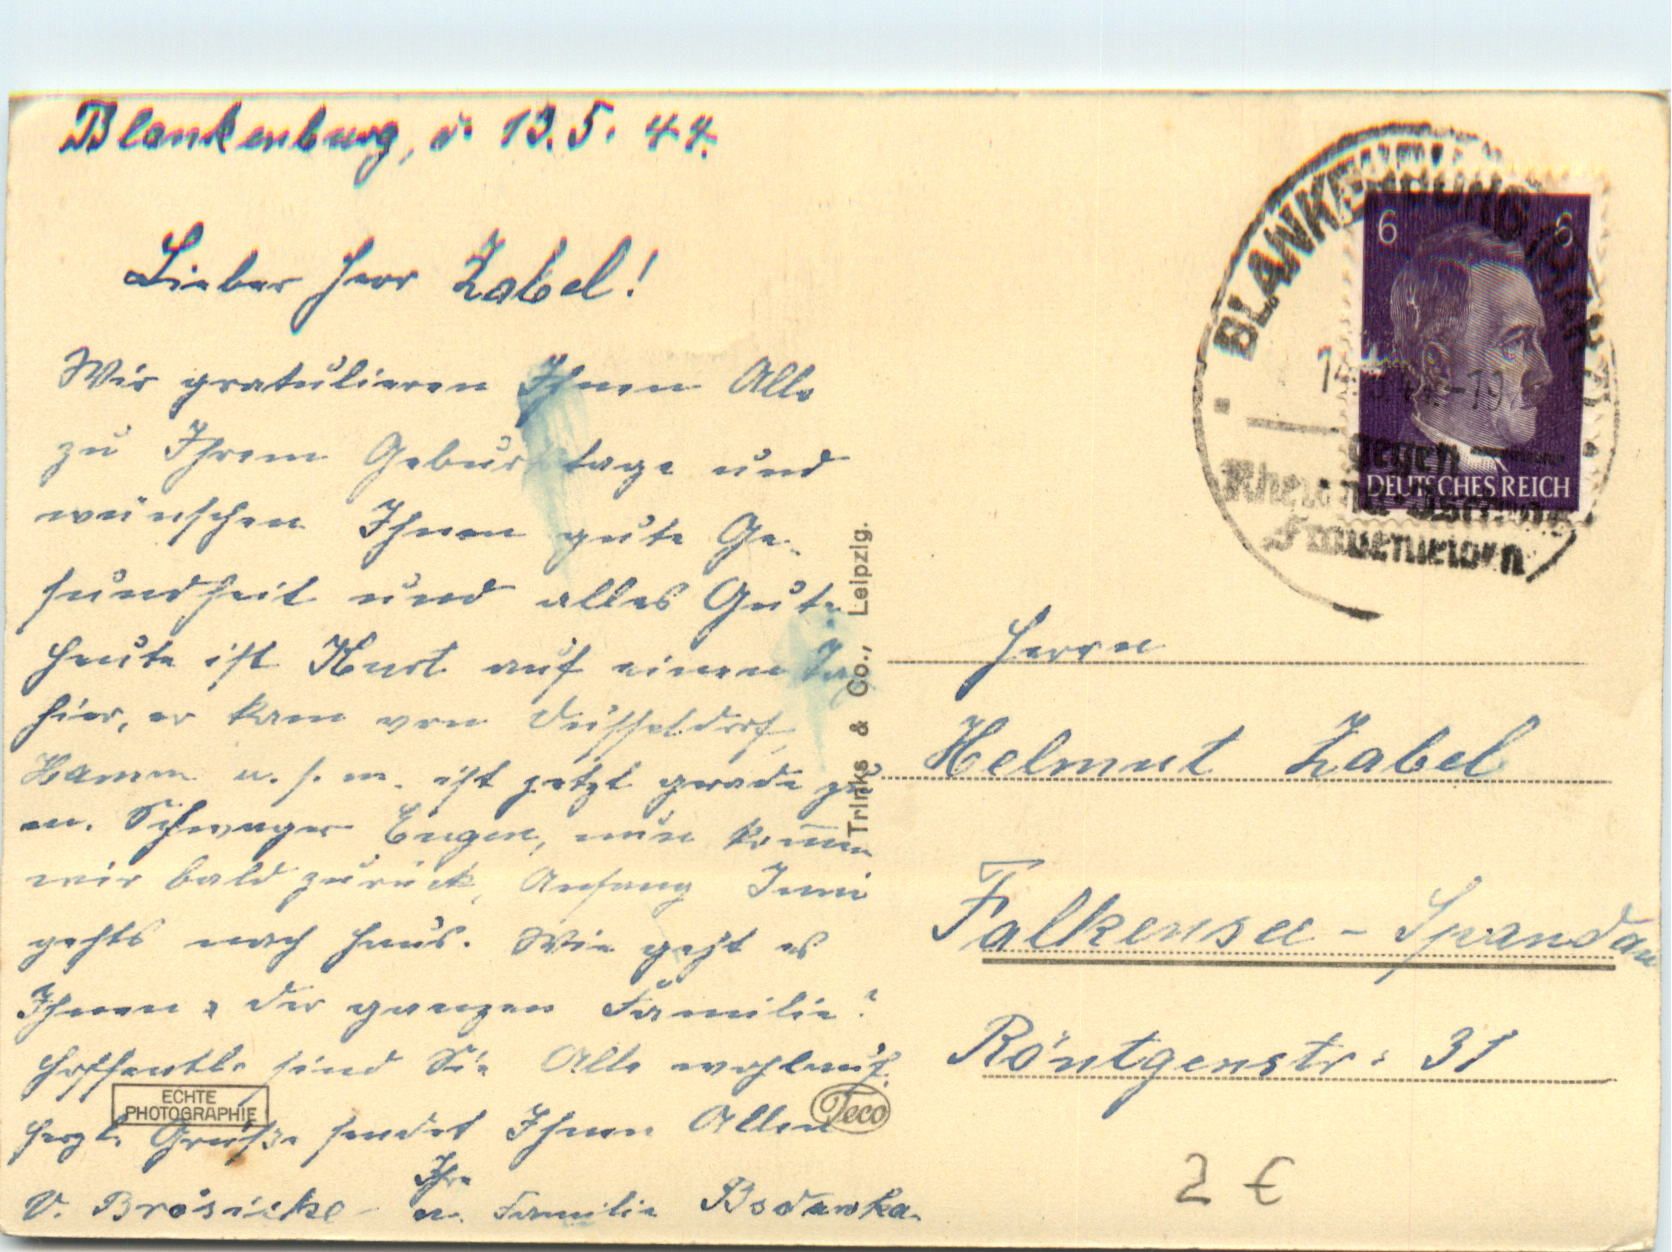 Blankenburg, d. 13.5.44.
Lieber Herr Zabel!
Wir gratulieren Ihnen Alle
zu Ihrem Geburtstage und
wünschen Ihnen gute Ge-
sundheit und alles Gute
heute ist Kurt auf einen Tag
hier, er kam von Düsseldorf,
Hamm u.s.w. ist jetzt grade zu
m. Schwager Eugen, nun komm̄en
wir bald zurück, Anfang Juni
gehts nach Haus. Wie geht es
Ihnen u. der ganzen Familie?
Hoffentl. sind Sie Alle wohlauf.
Herzl. Grüße sendet Ihnen Allen
Ihre
V. Brösicke u. Familie
ECHTE
PHOTOGRAPHIE
Teco
Trinks & Co., Leipzig.
BLANKENBURG
gegen
6 6
DEUTSCHES REICH
Herrn
Helmut Zabel
Falkensee - Spandau
Röntgenstr. 31
2 €